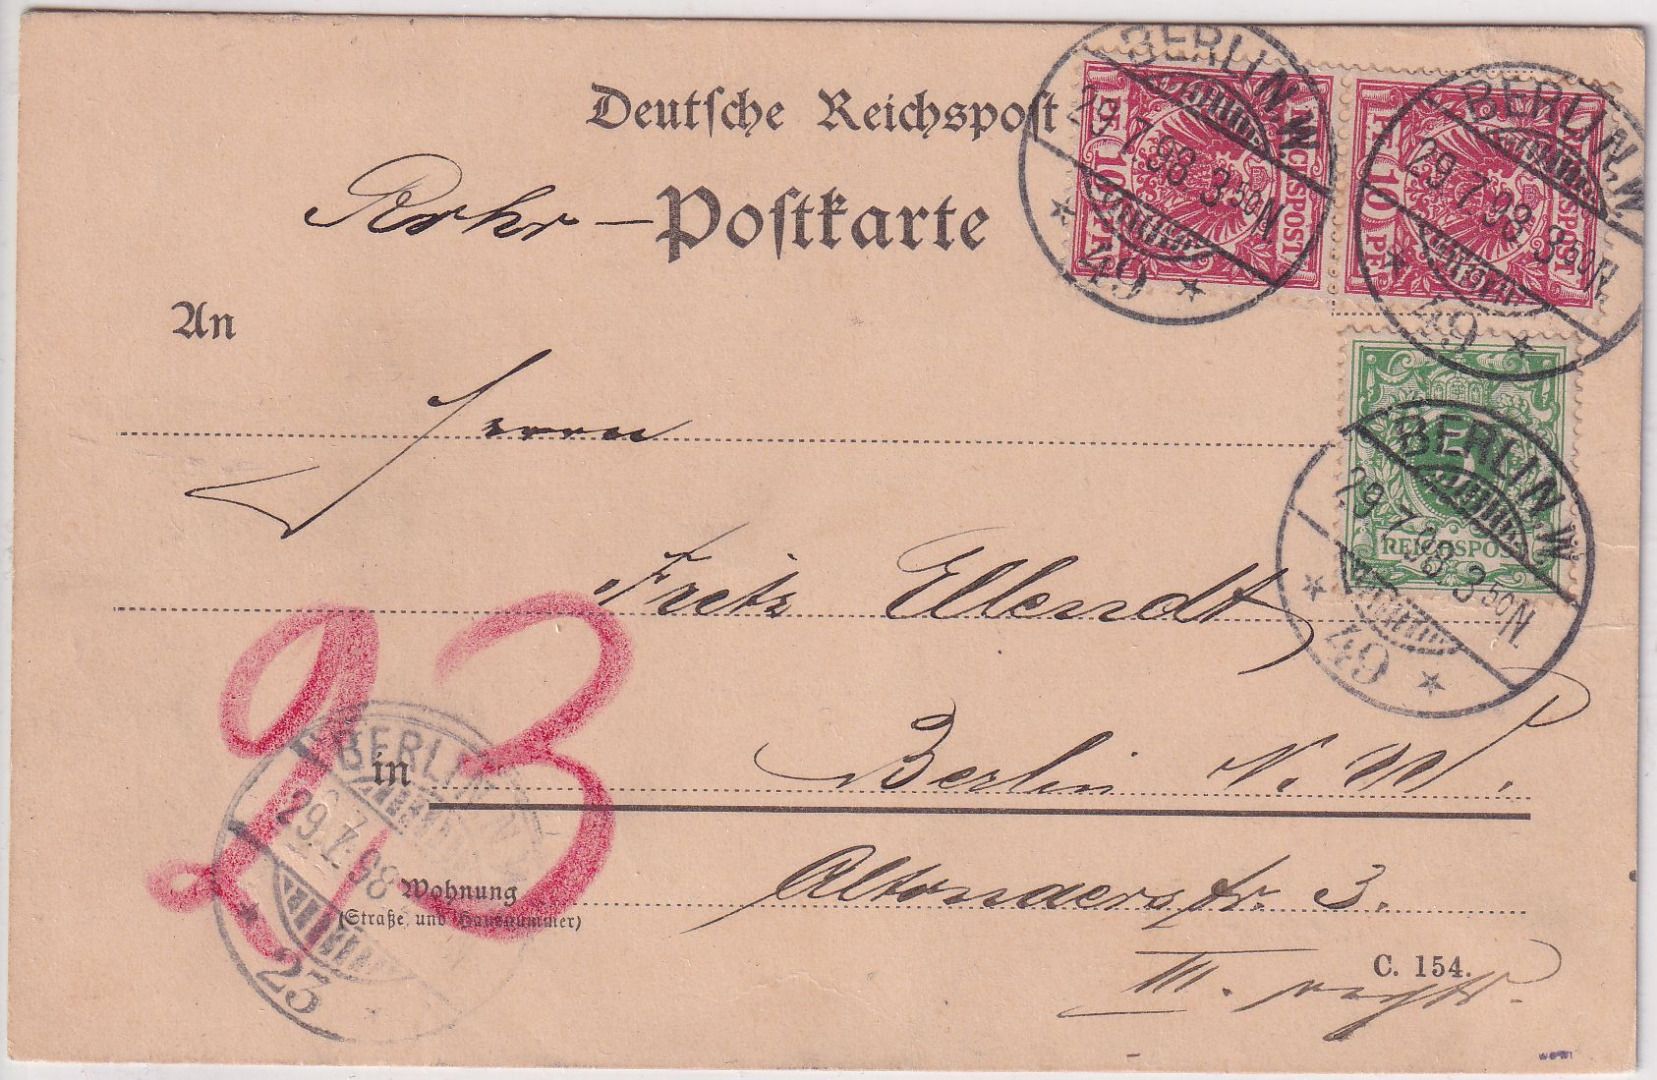 Deutsche Reichspost
Rohr-Postkarte
An
Herrn
Fritz Ellendt
in Berlin N. W.
Wohnung Altonaerstr. 3.
(Straße und Hausnummer)
III. rechts.
C. 154.
REICHSPOST
10 PF 10
REICHSPOST
10 PF 10
REICHSPOST
BERLIN, W.
29.7.98 3 50N.
* 49 *
BERLIN, W.
29.7.98 3 50N.
* 49 *
BERLIN, W.
29.7.98 3 50N.
* 49 *
23
BERLIN
29.7.98
* 23 *